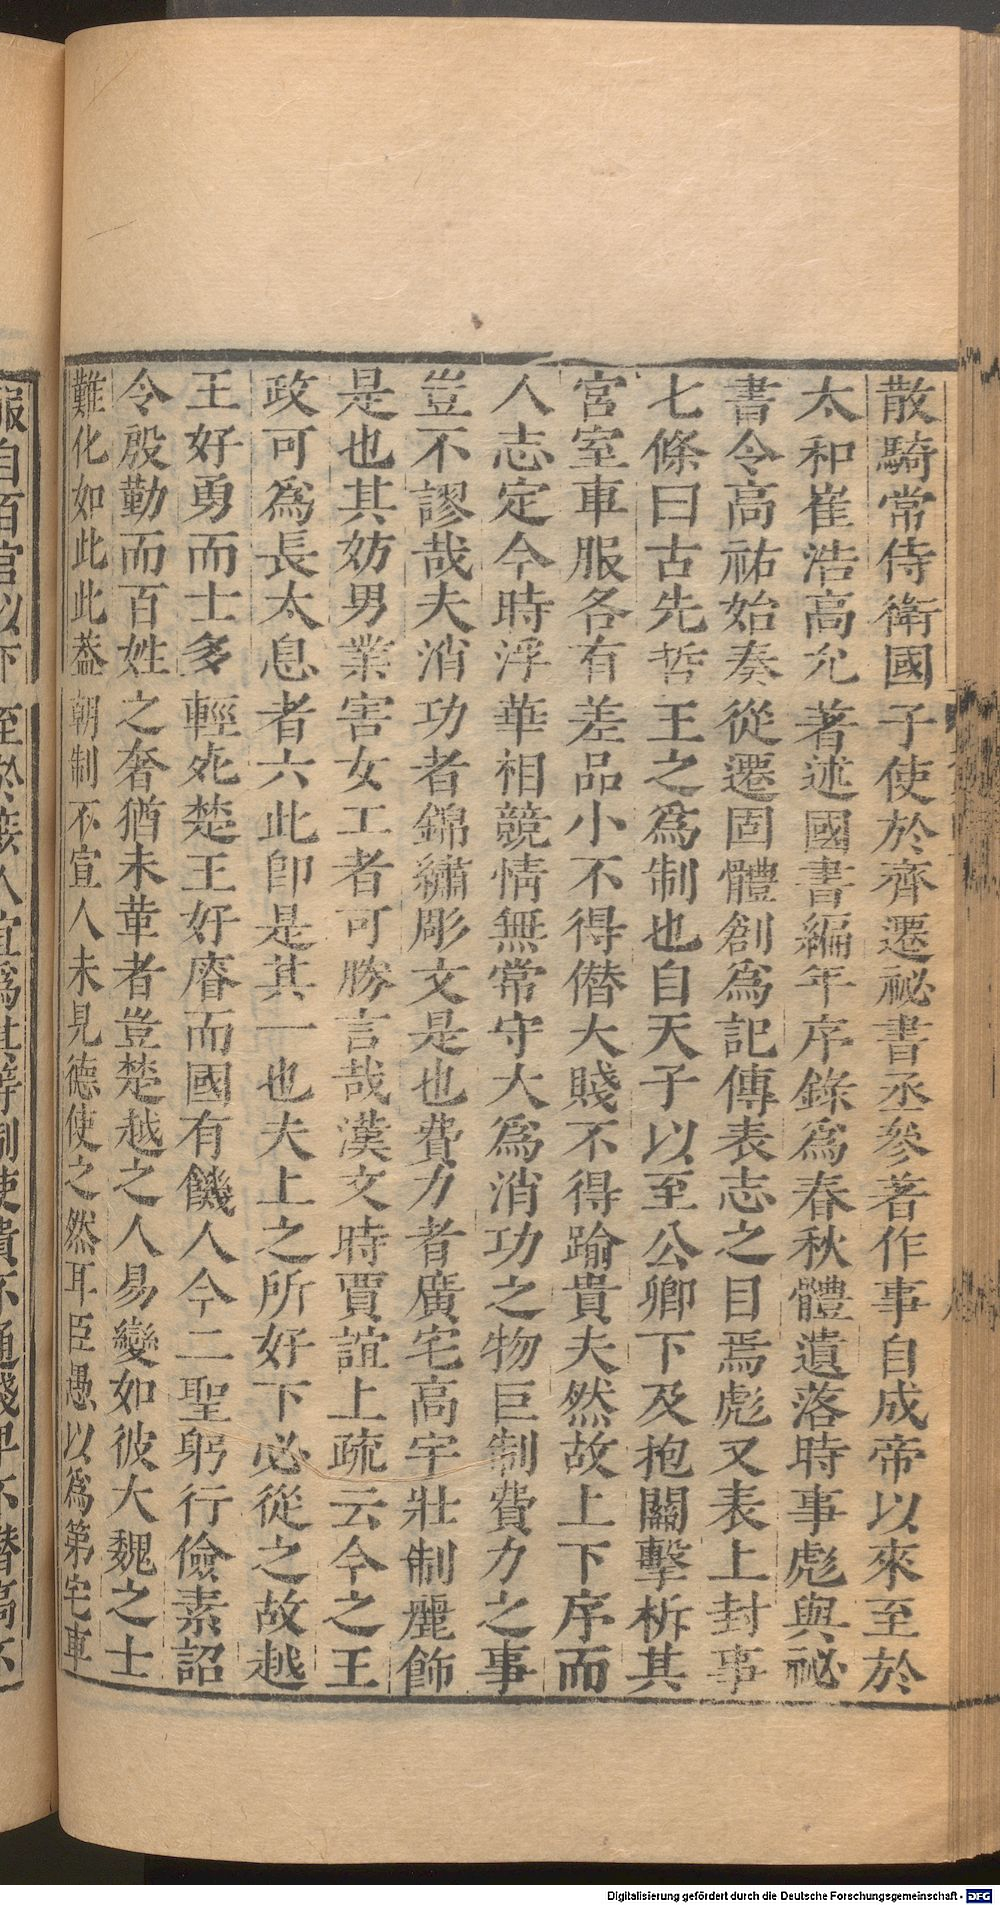 散騎常侍衛國子使於齊遷祕書丞參著作事自成帝以來至於
太和崔浩高允著述國書編年序錄爲春秋體遺落時事彪與祕
書令高祐始奏從遷固體創爲記傳表志之目焉彪又表上封事
七條曰古先哲王之爲制也自天子以至公卿下及抱關擊柝其
宮室車服各有差品小不得僭大賤不得踰貴夫然故上下序而
人志定今時浮華相競情無常守大爲消功之物巨制費力之事
豈不謬哉夫消功者錦繡彫文是也費力者廣宅高宇壯制麗飾
是也其妨男業害女工者可勝言哉漢文時賈誼上疏云今之王
政可爲長太息者六此卽是其一也夫上之所好下必從之故越
王好勇而士多輕死楚王好瘠而國有饑人今二聖躬行儉素詔
令殷勤而百姓之奢猶未革者豈楚越之人易變如彼大魏之士
難化如此此葢朝制不宜人未見德使之然耳臣愚以爲第宅車
服自百官以下至於接人宜爲其等制使貴不逼賤卑不僭高不
Digitalisierung gefördert durch die Deutsche Forschungsgemeinschaft - DFG